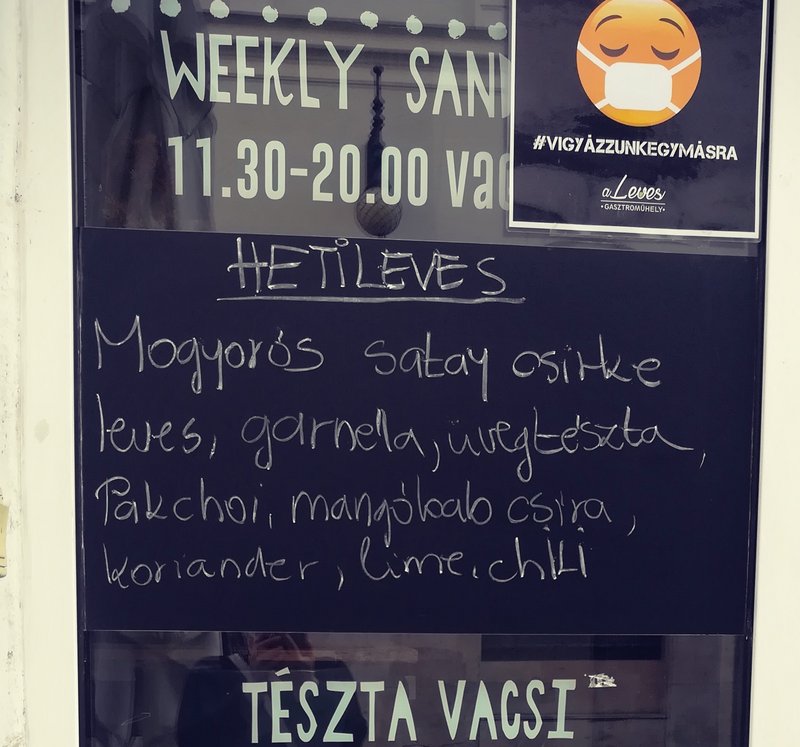 WEEKLY SAND
11.30-20.00 vac
#VIGYÁZZUNKEGYMÁSRA
a Leves
•GASZTROMŰHELY•
HETI LEVES
Mogyorós satay csirke
leves, garnela, üvegtészta,
Pakchoi, mangóbab csira,
koriander, lime, chili
TÉSZTA VACSI